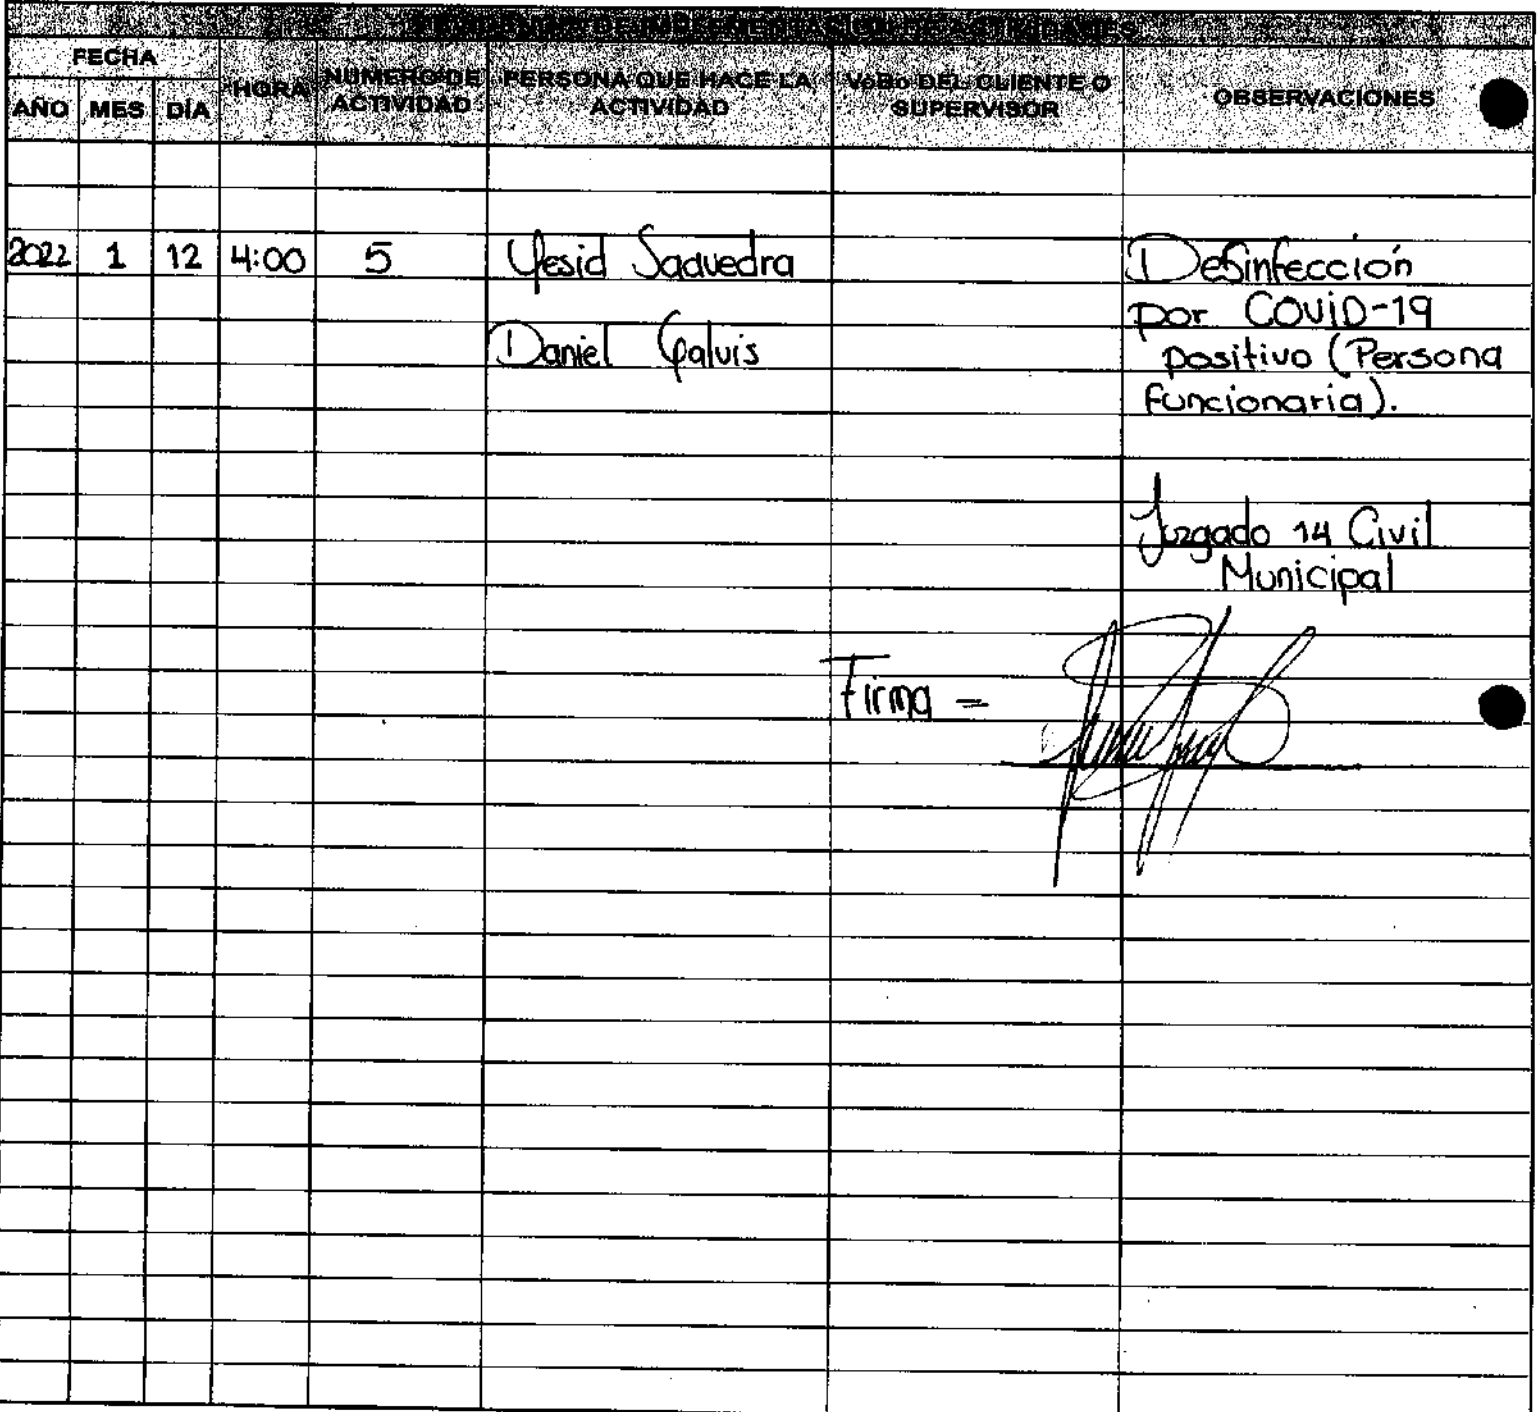 DE ACTIVIDADES
FECHA
AÑO MES DÍA
HORA
NUMERO DE
ACTIVIDAD
PERSONA QUE HACE LA
ACTIVIDAD
VoBo DEL CLIENTE O
SUPERVISOR
OBSERVACIONES
2022 1 12 4:00 5 Yesid Saavedra Desinfección
por COViD-19
Daniel Galvis positivo (Persona
funcionaria).
Juzgado 14 Civil
Municipal
Firma =